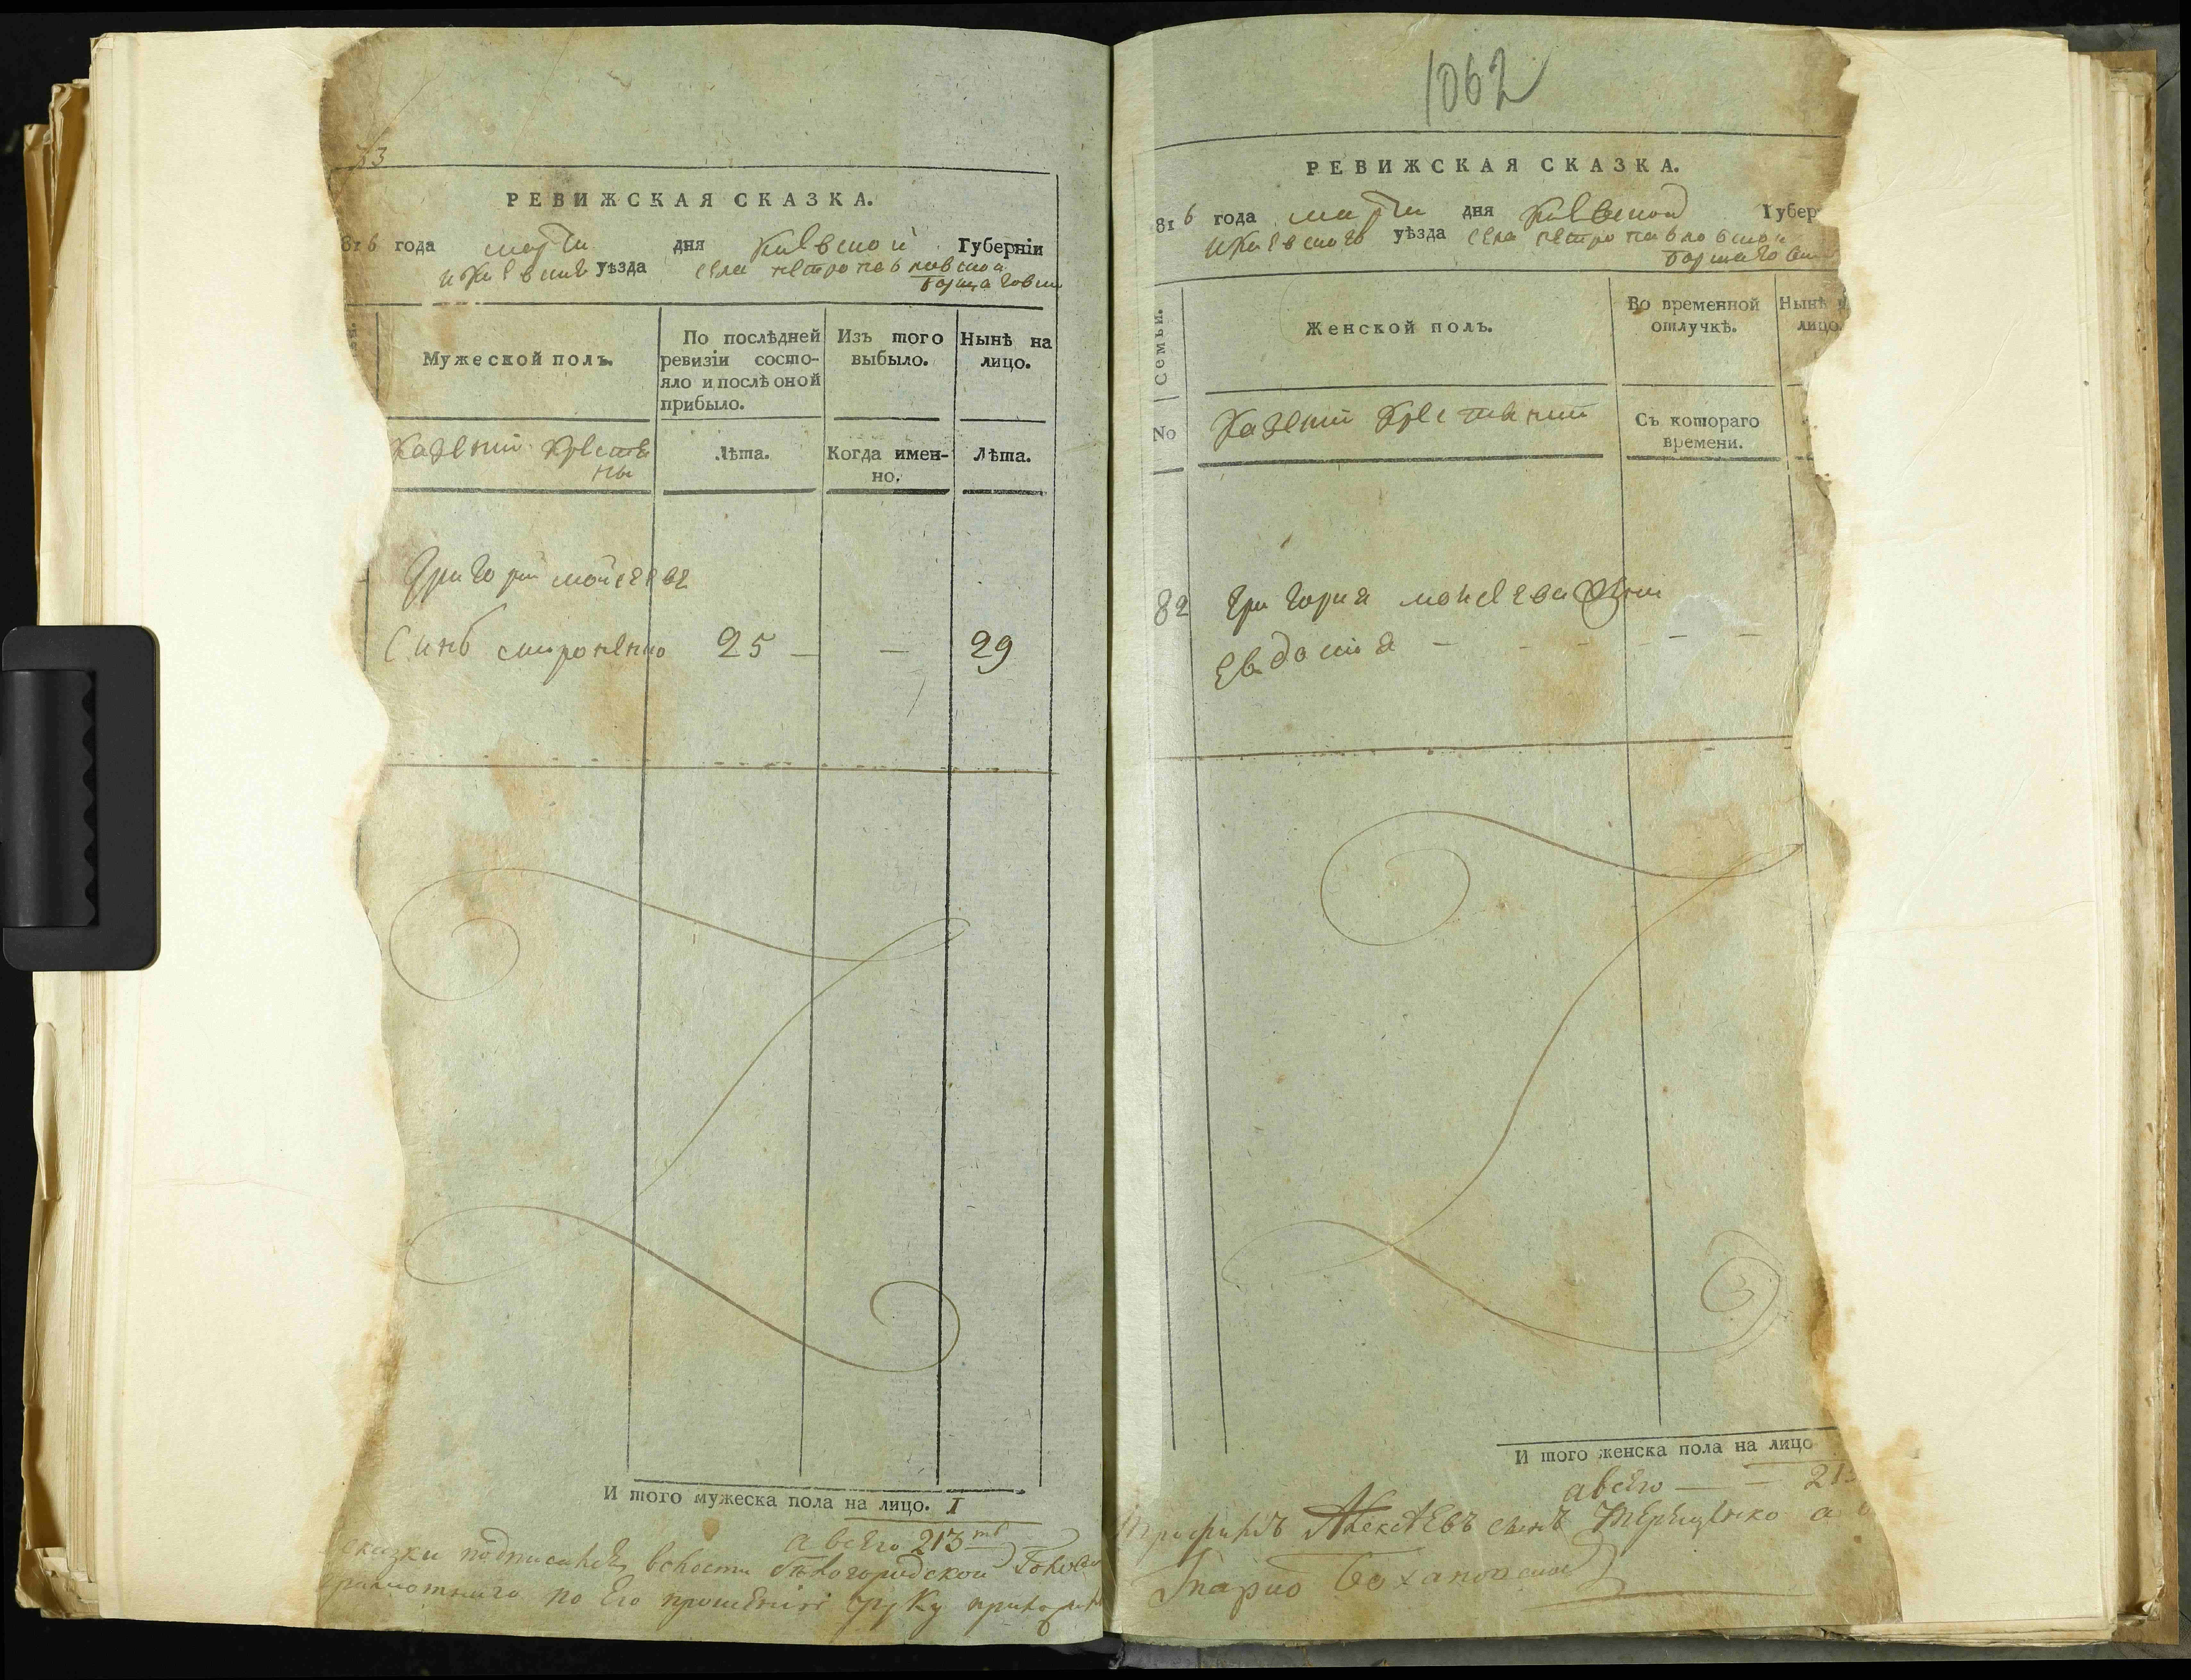 73
РЕВИЖСКАЯ СКАЗКА.
816 года марта дня Киевской Губерніи
и Киевского уѣзда села петропавловской
борщаговки
Мужеской полъ.
По послѣдней
ревизіи состо-
яло и послѣ оной
прибыло.
Изъ того
выбыло.
Нынѣ на
лицо.
Казенни Крестя
ни
Лѣта.
Когда имен-
но.
Лѣта.
Григорій мойсеевъ
Синъ 25 — — 29
И того мужеска пола на лицо. I
а всего 213
сказки волости Бѣлогородской
по Его прошению руку
1062
РЕВИЖСКАЯ СКАЗКА.
816 года марта дня Киевской Губер
и Киевского уѣзда села петропавловской
борщаговки
№ Семьи.
Женской полъ.
Во временной
отлучкѣ.
Нынѣ н
лицо.
Казенни Крестянни
Съ котораго
времени.
82 Григория мойсеева жена
Евдокия — — — — —
И того женска пола на лицо
авсего — — 21
Алексѣевъ сынъ Терещенко